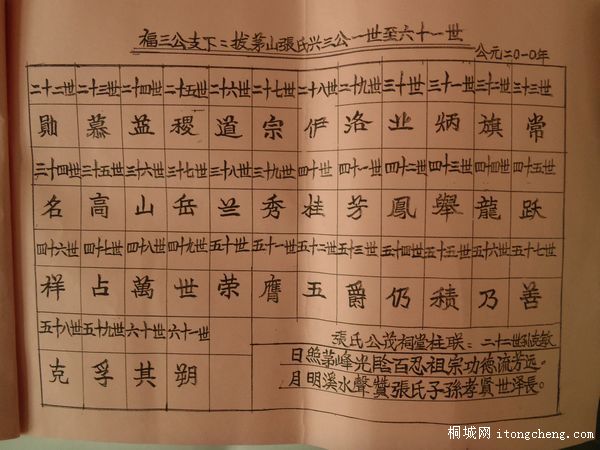 福三公支下:二拔茅山張氏兴三公一世至六十一世
公元二0一0年
二十二世 二十三世 二十四世 二十五世 二十六世 二十七世 二十八世 二十九世 三十世 三十一世 三十二世 三十三世
勛 慕 益 稷 道 宗 伊 洛 业 炳 旗 常
三十四世 三十五世 三十六世 三十七世 三十八世 三十九世 四十世 四十一世 四十二世 四十三世 四十四世 四十五世
名 高 山 岳 兰 秀 桂 芳 鳳 舉 龍 跃
四十六世 四十七世 四十八世 四十九世 五十世 五十一世 五十二世 五十三世 五十四世 五十五世 五十六世 五十七世
样 占 萬 世 荣 膺 玉 爵 仍 積 乃 善
五十八世 五十九世 六十世 六十一世
克 孚 其 朔
張氏公茂祠堂柱联:二十二世
日照茅峰光陰百忍祖宗功德流芳远。
月明溪水聲贊張氏子孫孝賢世澤長。
桐城网 itongcheng.com